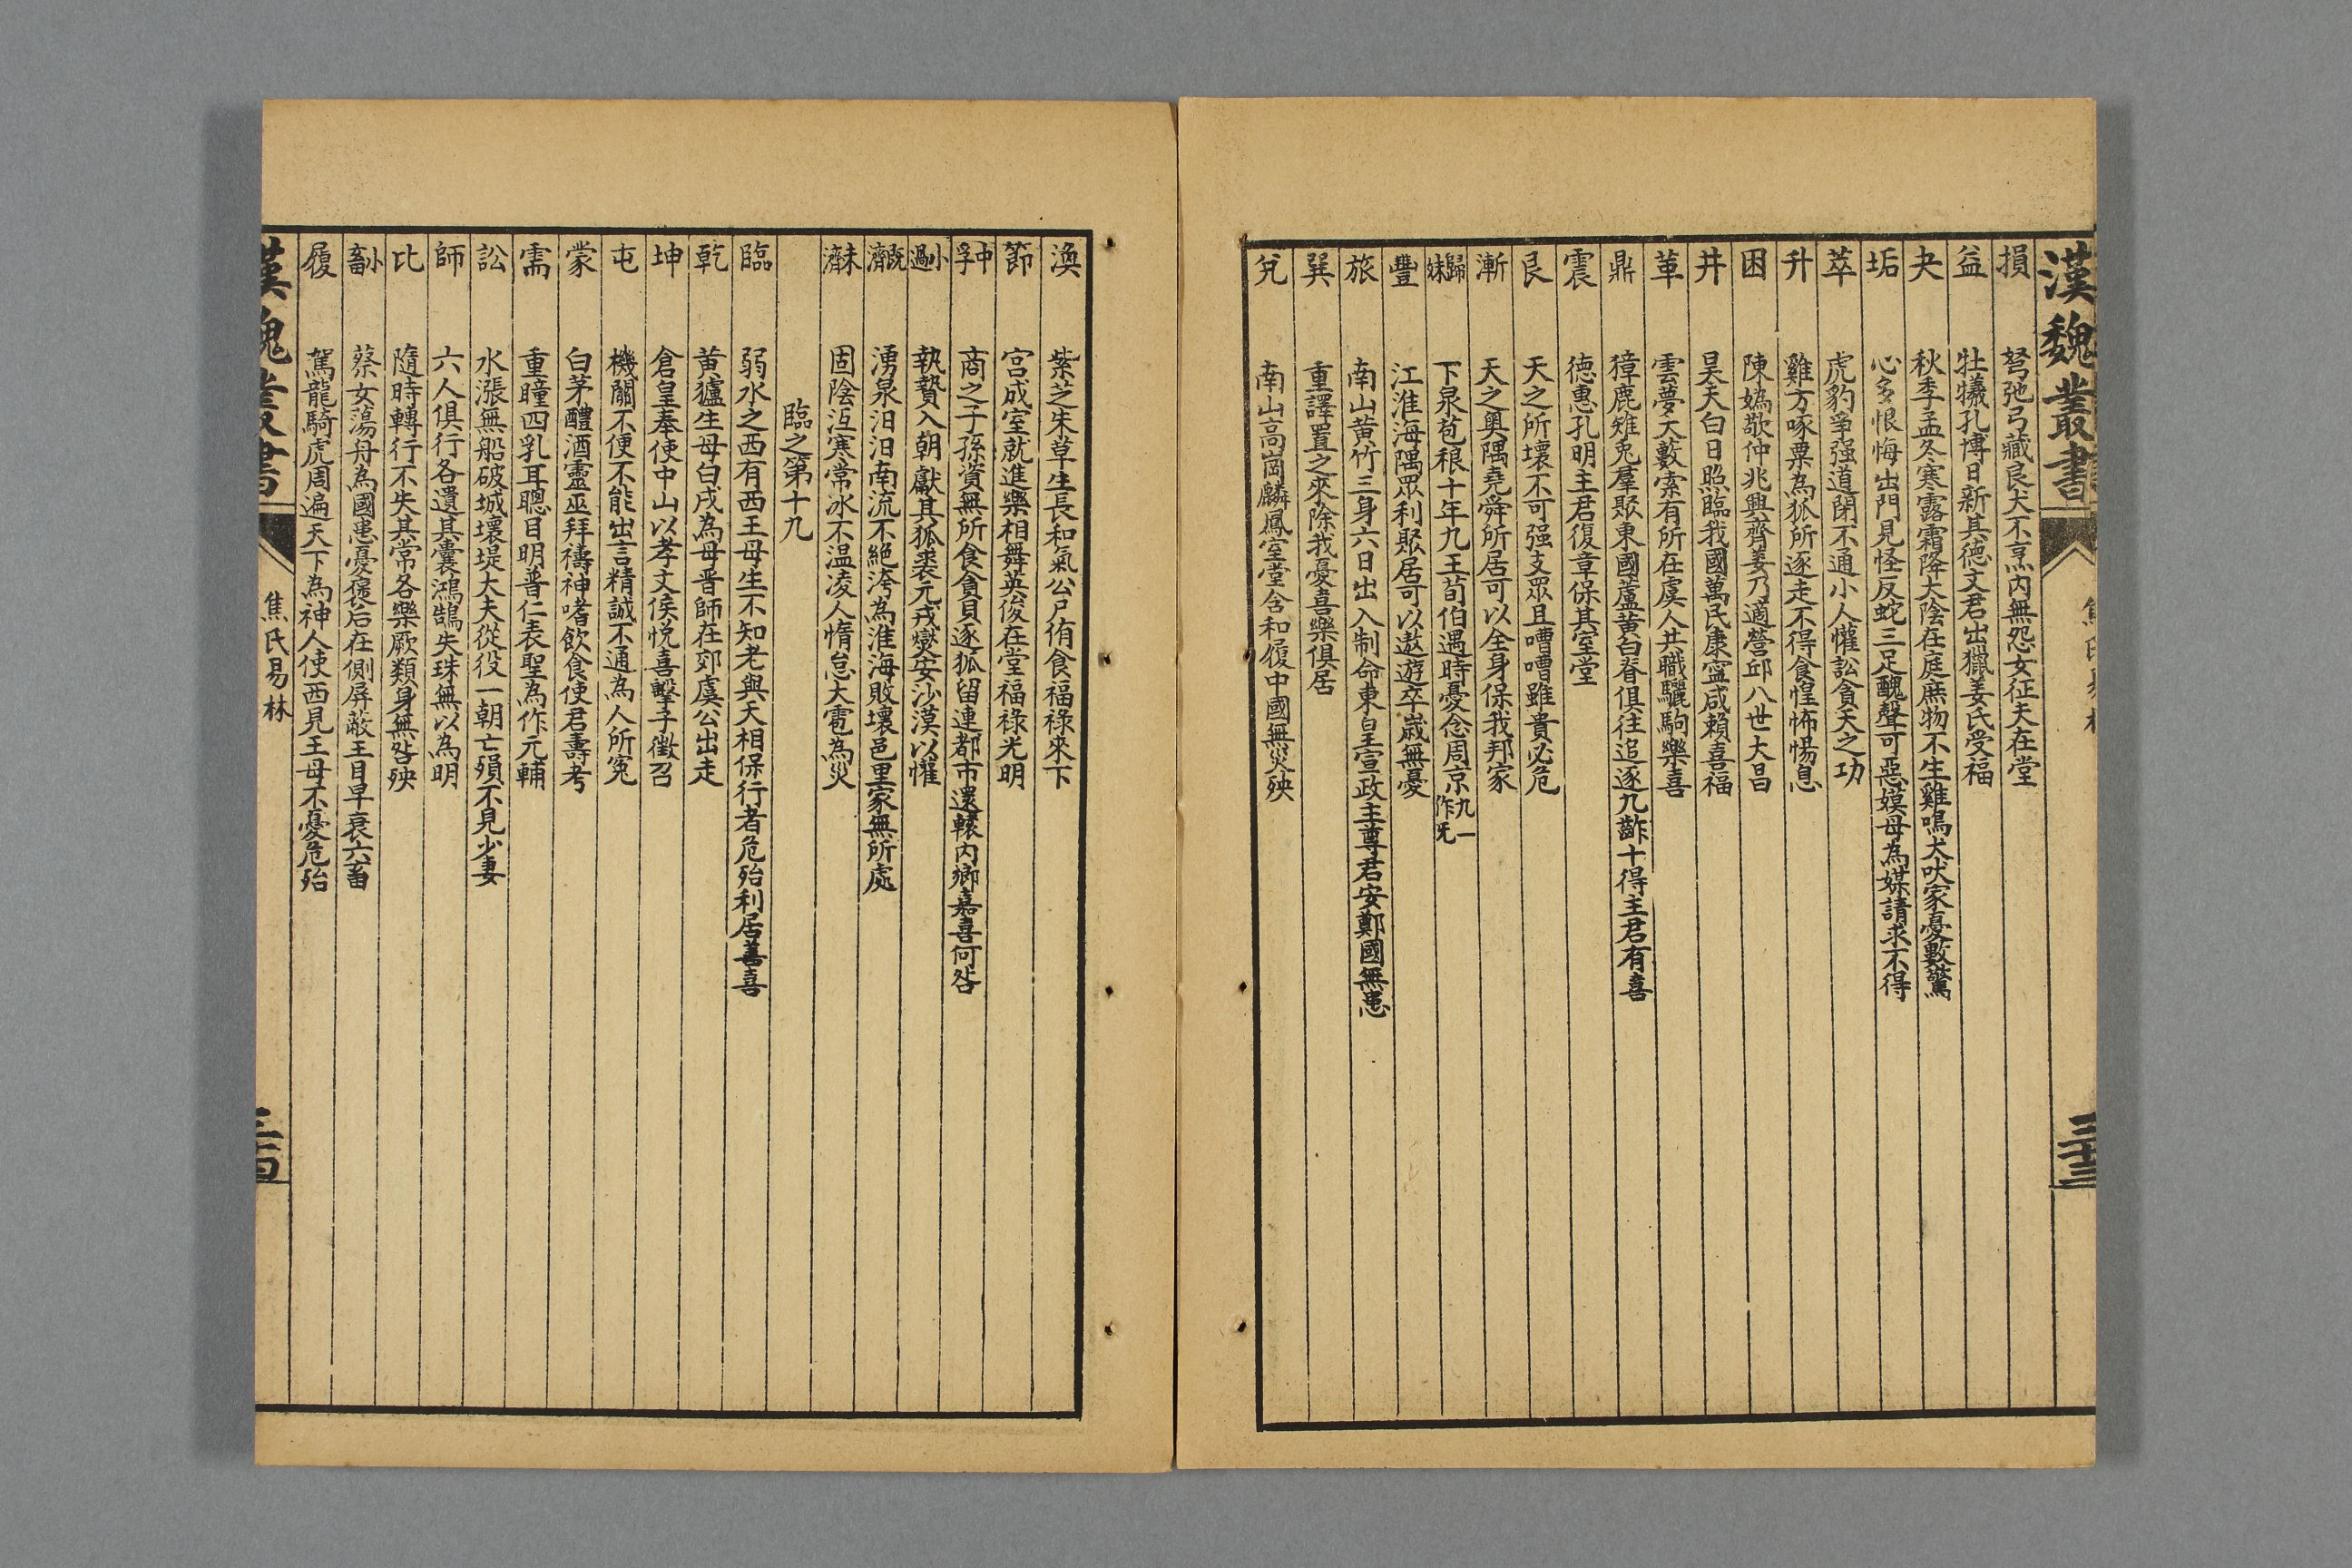 漢魏叢書
三十三
損 弩弛弓藏良犬不烹內無怨女征夫在堂
益 牡犧孔博日新其德文君出獵姜氏受福
夬 秋季孟冬寒露霜降大陰在庭庶物不生雞鳴犬吠家憂數驚
垢 心多恨悔出門見怪反蛇三足醜聲可惡嫫母為媒請求不得
萃 虎豹爭强道閉不通小人懽訟貪天之功
升 雞方啄粟為狐所逐走不得食惶怖惕息
困 陳媯敬仲兆興齊姜乃適營邱八世大昌
井 昊天白日照臨我國萬民康寧咸賴喜福
革 雲夢大藪索有所在虞人共職驪駒樂喜
鼎 獐鹿雉兎羣聚東國蘆黃白脊俱往追逐九齚十得主君有喜
震 德惠孔明主君復章保其室堂
艮 天之所壞不可强支眾且嘈嘈雖貴必危
漸 天之奧隅堯舜所居可以全身保我邦家
歸妹 下泉苞稂十年九王荀伯遇時憂念周京九一作无
豐 江淮海隅眾利聚居可以遨遊卒歲無憂
旅 南山黃竹三身六日出入制命東皇宣政主尊君安鄭國無患
巽 重譯置之來除我憂喜樂俱居
兌 南山高崗麟鳳室堂含和履中國無災殃
渙 紫芝朱草生長和氣公尸侑食福祿來下
節 宮成室就進樂相舞英俊在堂福祿光明
中孚 商之子孫資無所食貪貝逐狐留連都市還轅內鄉嘉喜何咎
小過 執贄入朝獻其狐裘元戎燮安沙漠以懽
既濟 湧泉汩汩南流不絕洿為淮海敗壞邑里家無所處
未濟 固陰沍寒常冰不温凌人惰怠大雹為災
臨之第十九
臨 弱水之西有西王母生不知老與天相保行者危殆利居善喜
乾 黃獹生母白戌為母晋師在郊虞公出走
坤 倉皇奉使中山以孝文侯悅喜擊子徵召
屯 機關不便不能出言精誠不通為人所冤
蒙 白茅醴酒靈巫拜禱神嗜飲食使君壽考
需 重瞳四乳耳聰目明普仁表聖為作元輔
訟 水漲無船破城壞堤大夫從役一朝亡殞不見少妻
師 六人俱行各遺其囊鴻鵠失珠無以為明
比 隨時轉行不失其常各樂厥類身無咎殃
小畜 蔡女蕩舟為國患憂褒后在側屏蔽王目早衰六畜
履 駕龍騎虎周遍天下為神人使西見王母不憂危殆
漢魏叢書
焦氏易林
三十四